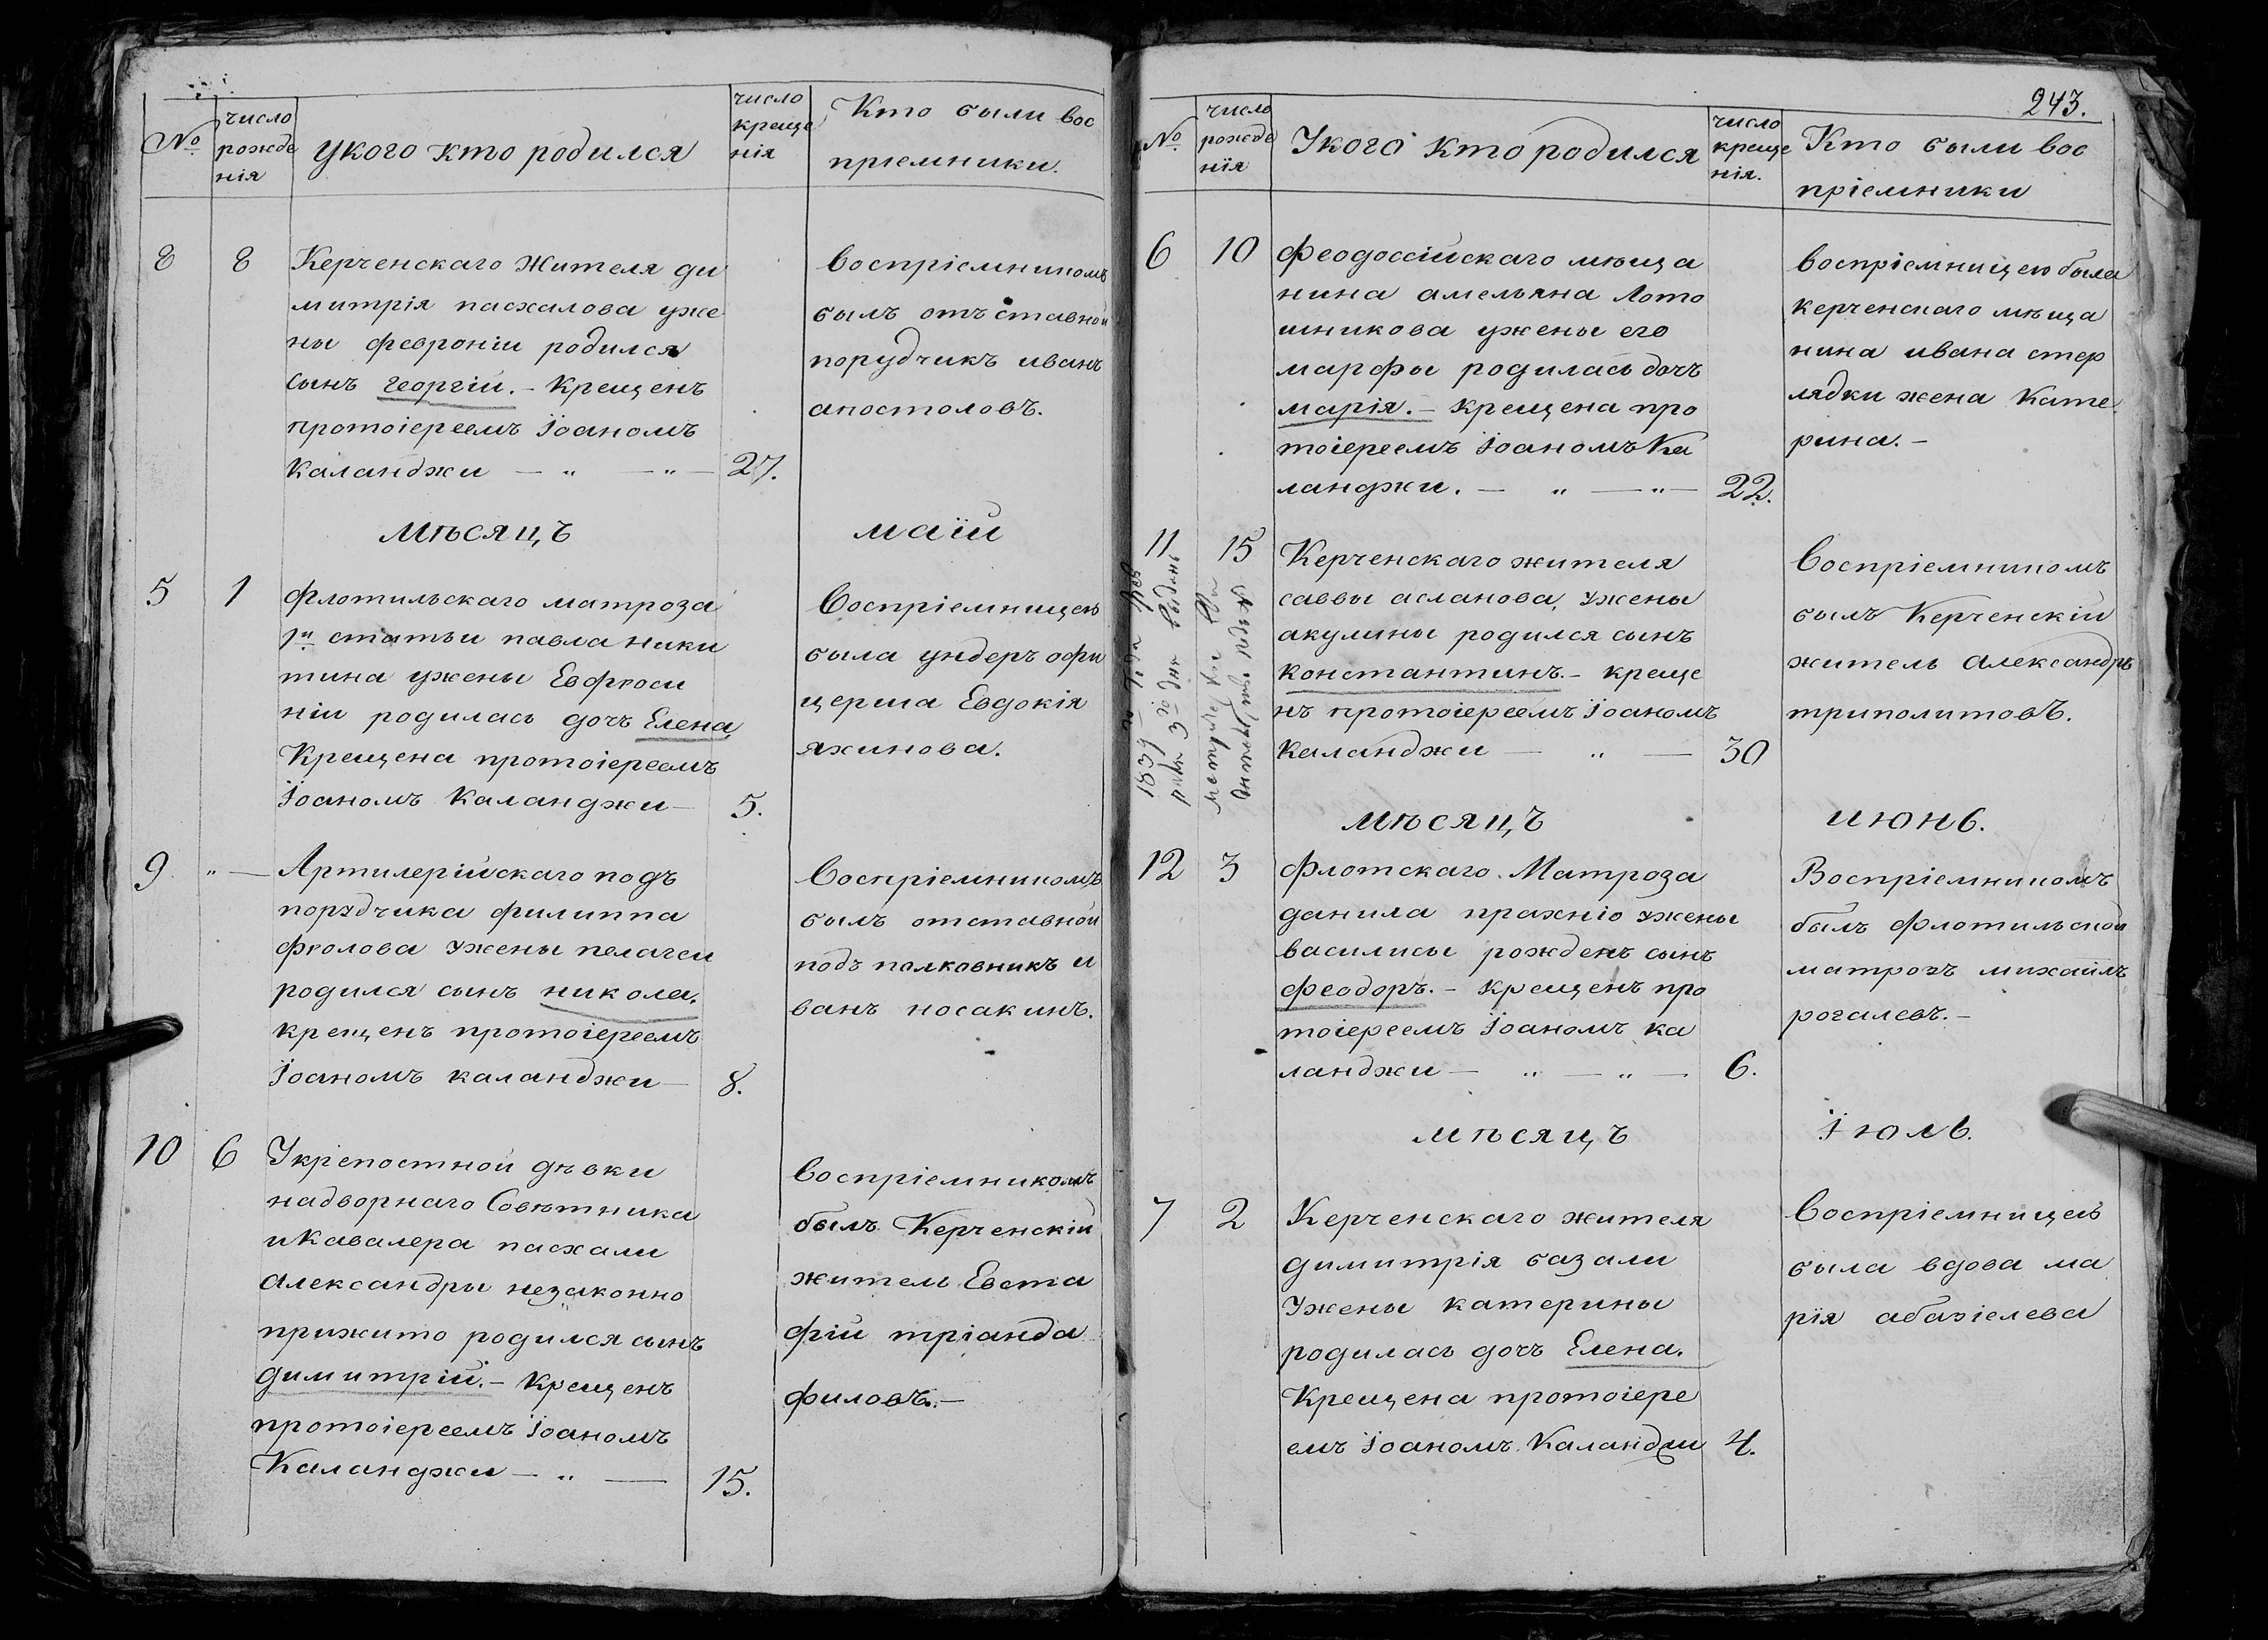 №
число
рожде
нія
укого кто родился
число
креще
нія
Кто были вос
пріемники.
8
8
Керченскаго Жителя ди
митрія пасхалова уже
ны февроніи родился
сынъ георгій. - Крещенъ
протоіереемъ Іоаномъ
Каланджи — „ — „ —
27.
воспріемникомъ
былъ отъставной
порудчикъ иванъ
апостоловъ.
мѣсяцъ
маїй
5
1
флотильскаго матроза
1й статьи павла ники
тина ужены Евфроси
ніи родилась дочъ Елена
Крещена протоіереемъ
Іоаномъ Каланджи —
5.
Воспріемницею
была ундеръ офи
церша Евдокія
яхинова.
9.
„ —
Артилерійскаго подъ
порудчика филиппа
фролова ужены пелагеи
родился сынъ николай.
крещенъ протоіереемъ
Іоаномъ каланджи —
8.
Воспріемникомъ
былъ отставной
подъ полковникъ и
ванъ носакинъ.
10
6
Укрепостной дѣвки
надворнаго Совѣтника
и Кавалера пасхали
александры незаконно
прижито родился сынъ
димитрій. - Крещенъ
протоіереемъ Іоаномъ
Каланджи — „ —
15.
воспріемникомъ
былъ Керченскій
житель Евста
фій тріанда
филовъ. —
243.
№
число
рожде
нія
Укого кто родился
число
креще
нія.
Кто были вос
пріемники
6
10
феодоссійскаго мѣща
нина амельяна Лото
шникова ужены его
марфы родилась дочъ
марія. - крещена про
тоіереемъ Іоаномъ Ка
ланджи. — „ — „ —
22.
воспріемницею была
керченскаго мѣща
нина ивана стер
лядки жена Кате
рина. -
11
15
Керченскаго жителя
саввы асланова, ужены
акулины родился сынъ
константинъ. - креще
нъ протоіереемъ Іоаномъ
каланджи — „ —
30
Воспріемникомъ
былъ Керченскій
житель александръ
триполитовъ.
1839 го Года
3го дня выдано
мѣсяцъ
июнь.
12
3
Флотскаго. Матроза
данила прахніо ужены
василисы рожденъ сынъ
феодоръ. - Крещенъ про
тоіереемъ Іоаномъ ка
ланджи — „ — „ —
6.
Воспріемникомъ
былъ флотильской
матрозъ михаилъ
рогалевъ. -
мѣсяцъ
Іюль.
7
2
Керченскаго жителя
димитрія базали
ужены катерины
родилась дочъ Елена.
Крещена протоіере
емъ Іоаномъ. Каланджи
4.
Воспріемницею
была вдова ма
рія абазіелева